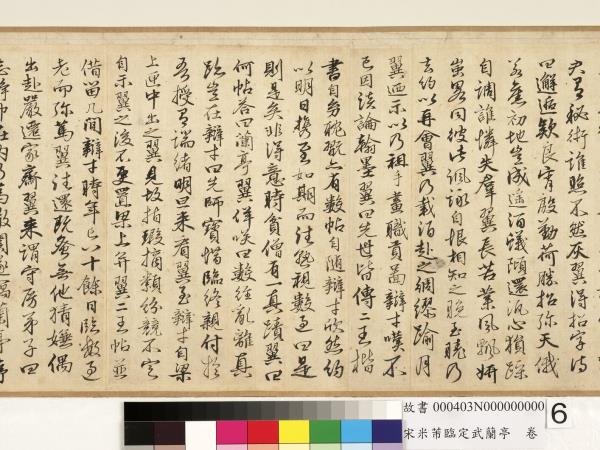 君有秘術誰照不然灰翼得招字詩
曰邂逅欵良宵殷勤荷勝招弥天俄
若舊初地豈成遙酒蟻傾還泛心猿躁
自調誰憐失羣翼長苦業風飄妍
蚩略同彼此諷詠自恨相知之晚至曉乃
去約以再會翼乃載酒赴之綢繆踰月
翼迺示以乃祖手畫職貢圖辯才嘆不
已因談論翰墨翼曰先世皆傳二王楷
書自幼耽翫亦有數帖自隨辯才欣然約
以明日携至如期而往熟視數過曰是
則是矣非得意時貧僧有一真蹟翼曰
何帖答曰蘭亭翼佯嘆曰數經亂離真
跡豈在辯才曰先師寶惜臨終親付於
吾授有端緒明日来看翼至辯才自梁
上匣中出之翼見故指瑕摘纇紛競不定
自示翼之後不更置梁上并翼二王帖並
借留几間辯才時年八十餘日臨數過
老而弥篤翼往還既密無他猜嫌偶
出赴嚴遷家齋翼来謂守房弟子曰
故書 000403N000000000
宋米芾臨定武蘭亭 卷
6